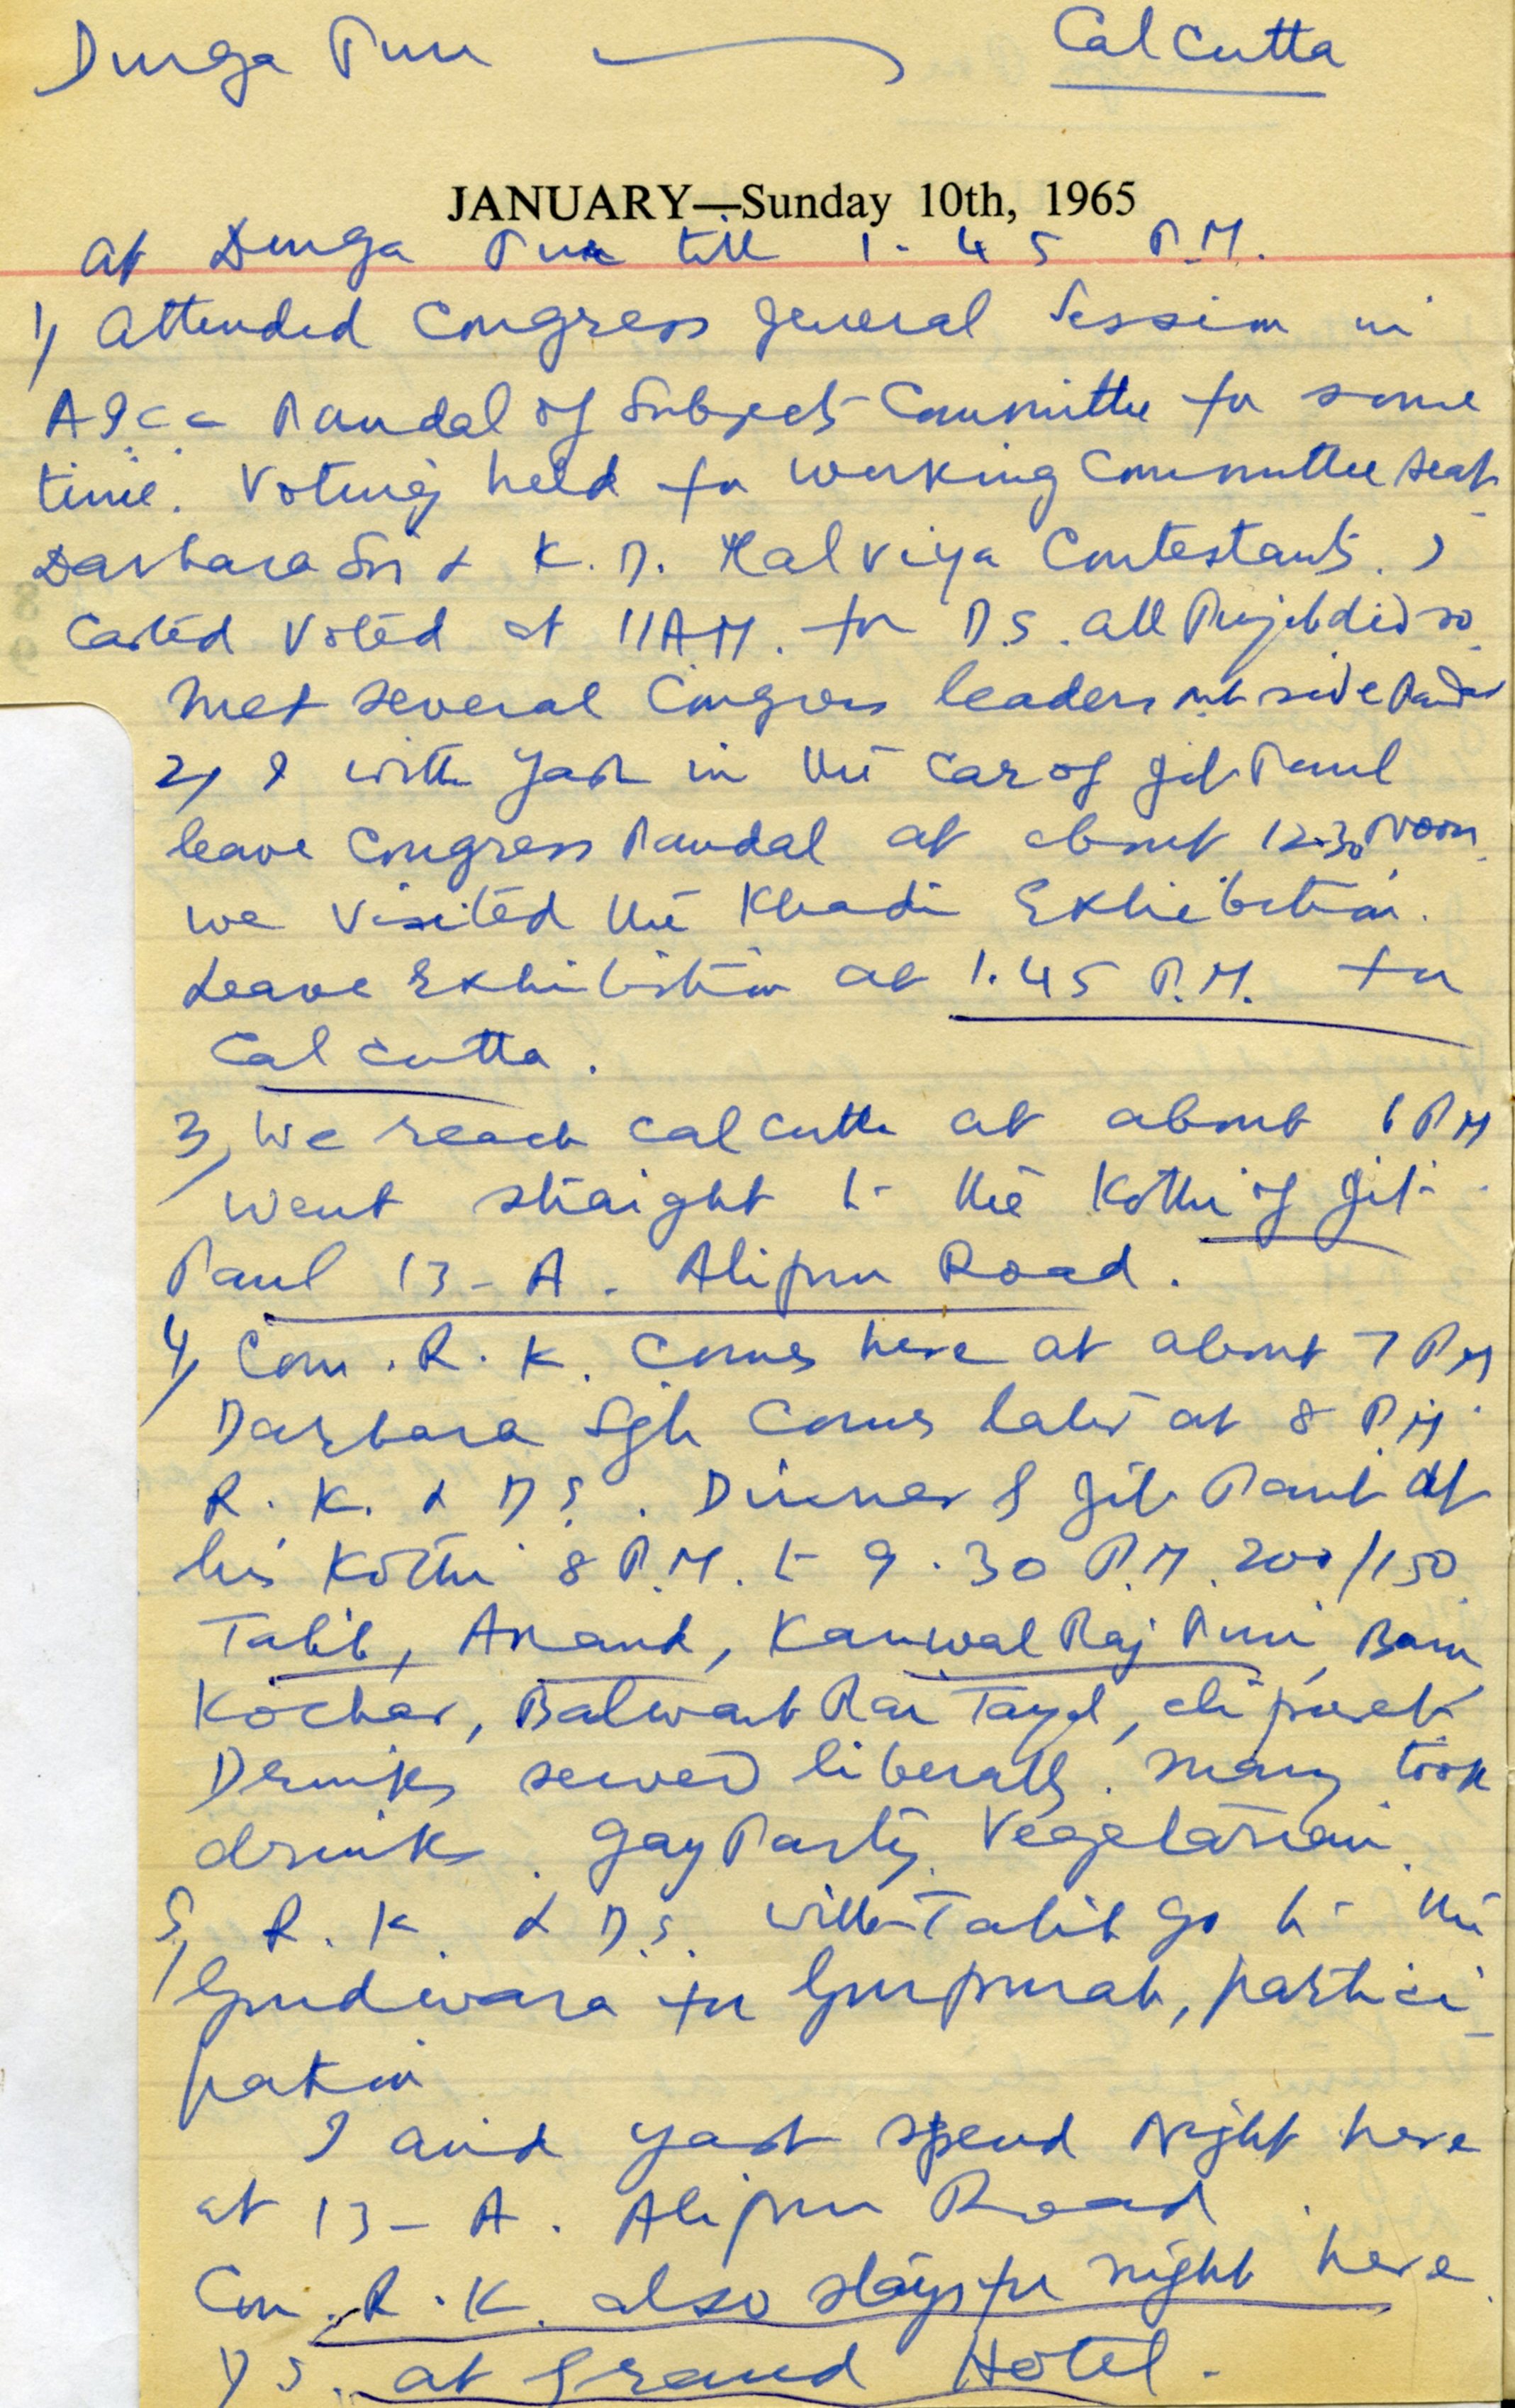 Durga Pur Calcutta
JANUARY—Sunday 10th, 1965
at Durga Pur till 1-45 P.M.
1) Attended Congress general Session in
A.I.C.C. Pandal of Subjects Committee for some
time. Voting held for working Committee seat
Darbara Sn & K.D. Malviya Contestants. I
Casted Voted at 11 A.M. for D.S. all Punjab did so
Met several Congress leaders out side Pandal
2) I with Yash in the car of Jit Paul
leave Congress Pandal at about 12.30 Noon
we visited the Khadi Exhibition.
Leave Exhibition at 1.45 P.M. for
Calcutta.
3) We reach Calcutta at about 6 PM
went straight to the Kothi of Jit
Paul 13-A. Alipur Road.
4) Com. R. K. Comes here at about 7 PM
Darbara Sgh Comes later at 8 P.M.
R. K. & D.S. Dinner of Jit Paul at
his Kothi 8 P.M. to 9.30 P.M. 200/150
Talib, Anand, Kanwal Raj Puri,
Kochar, Balwant Rai Tayal,
Drinks served liberally. Many took
drinks. Gay Party. Vegetarian.
5) R. K. & D.S. with Talib go to the
Gurdwara for Gurpurab, partici-
pation
I and Yash spend Night here
at 13-A. Alipur Road
Com. R. K. also stays for night here.
D S. at Grand Hotel.